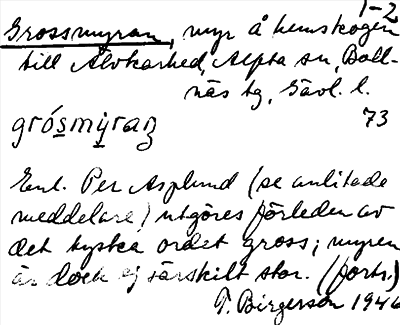 1-2
Grossmyran, myr å hemskogen
till Älvkarhed, Alfta sn, Boll-
näs tg, Gävl. l.
grósmỳran 73
Enl. Per Asplund (se anlitade
meddelare) utgöres förleden av
det tyska ordet gross; myren
är dock ej särskilt stor. (forts.)
T. Birgerson 1946